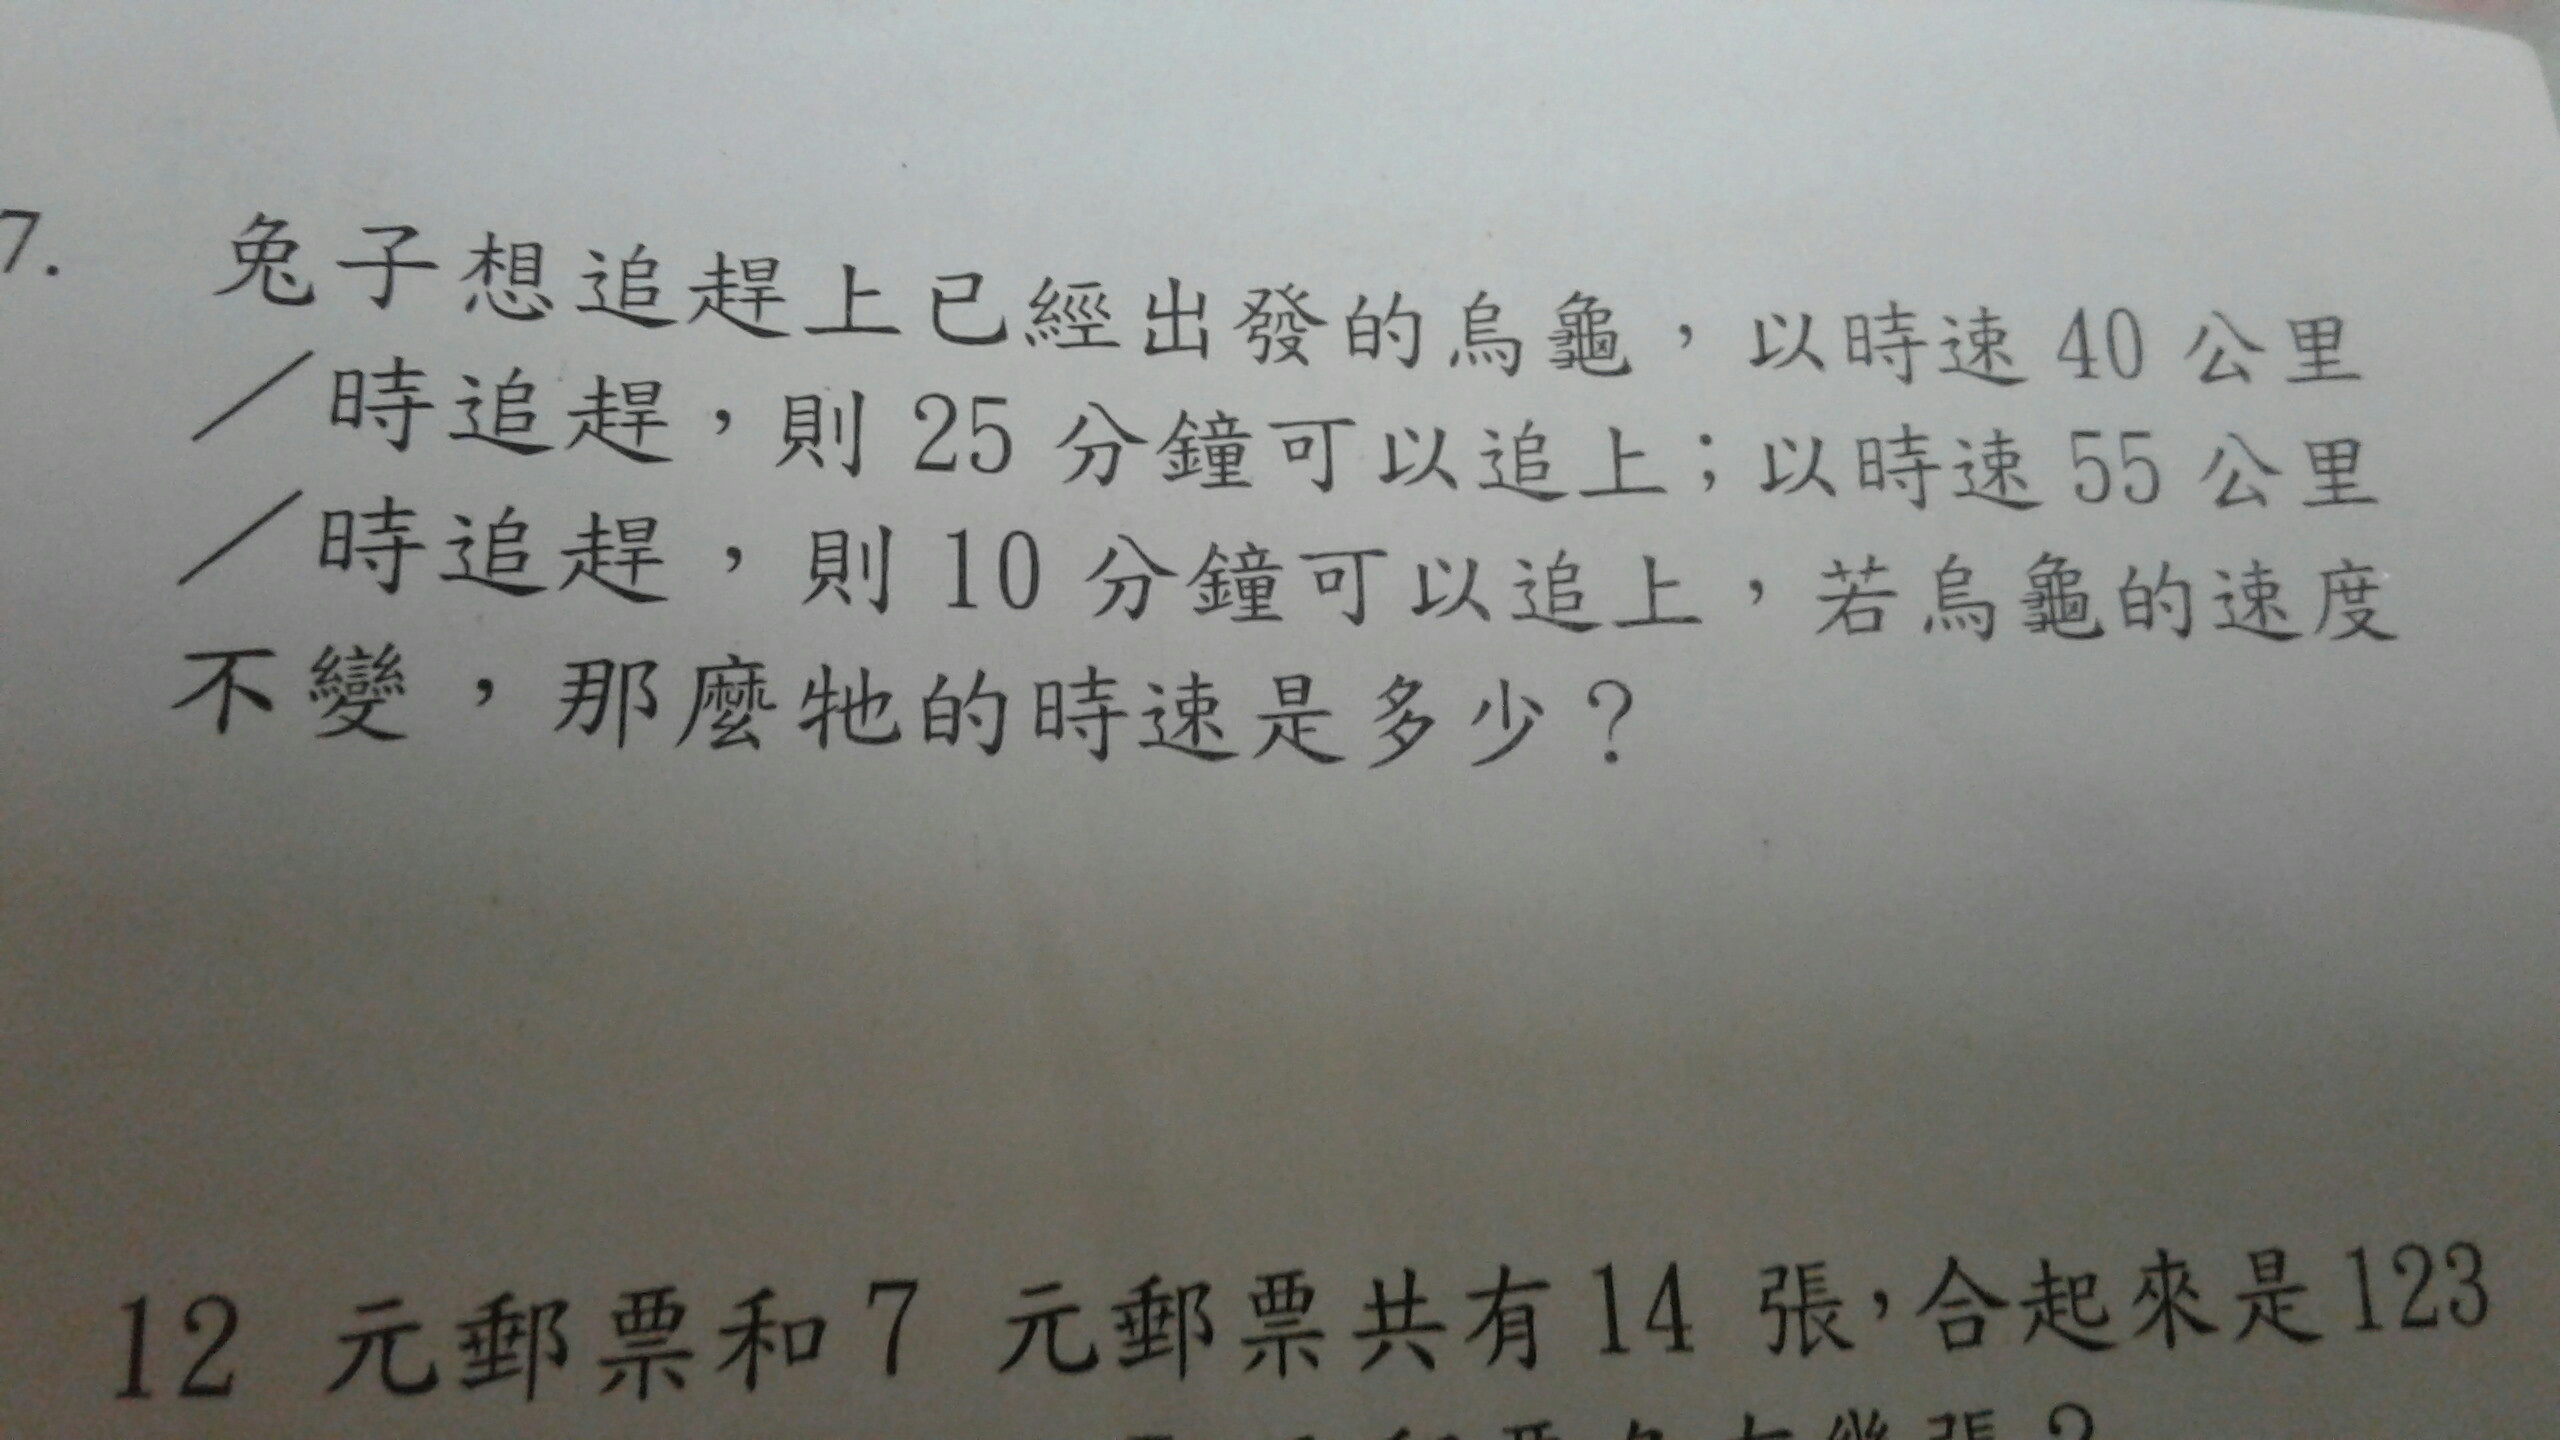 7. 兔子想追趕上已經出發的烏龜，以時速 40 公里
／時追趕，則 25 分鐘可以追上；以時速 55 公里
／時追趕，則 10 分鐘可以追上，若烏龜的速度
不變，那麼牠的時速是多少？
12 元郵票和 7 元郵票共有 14 張，合起來是 123